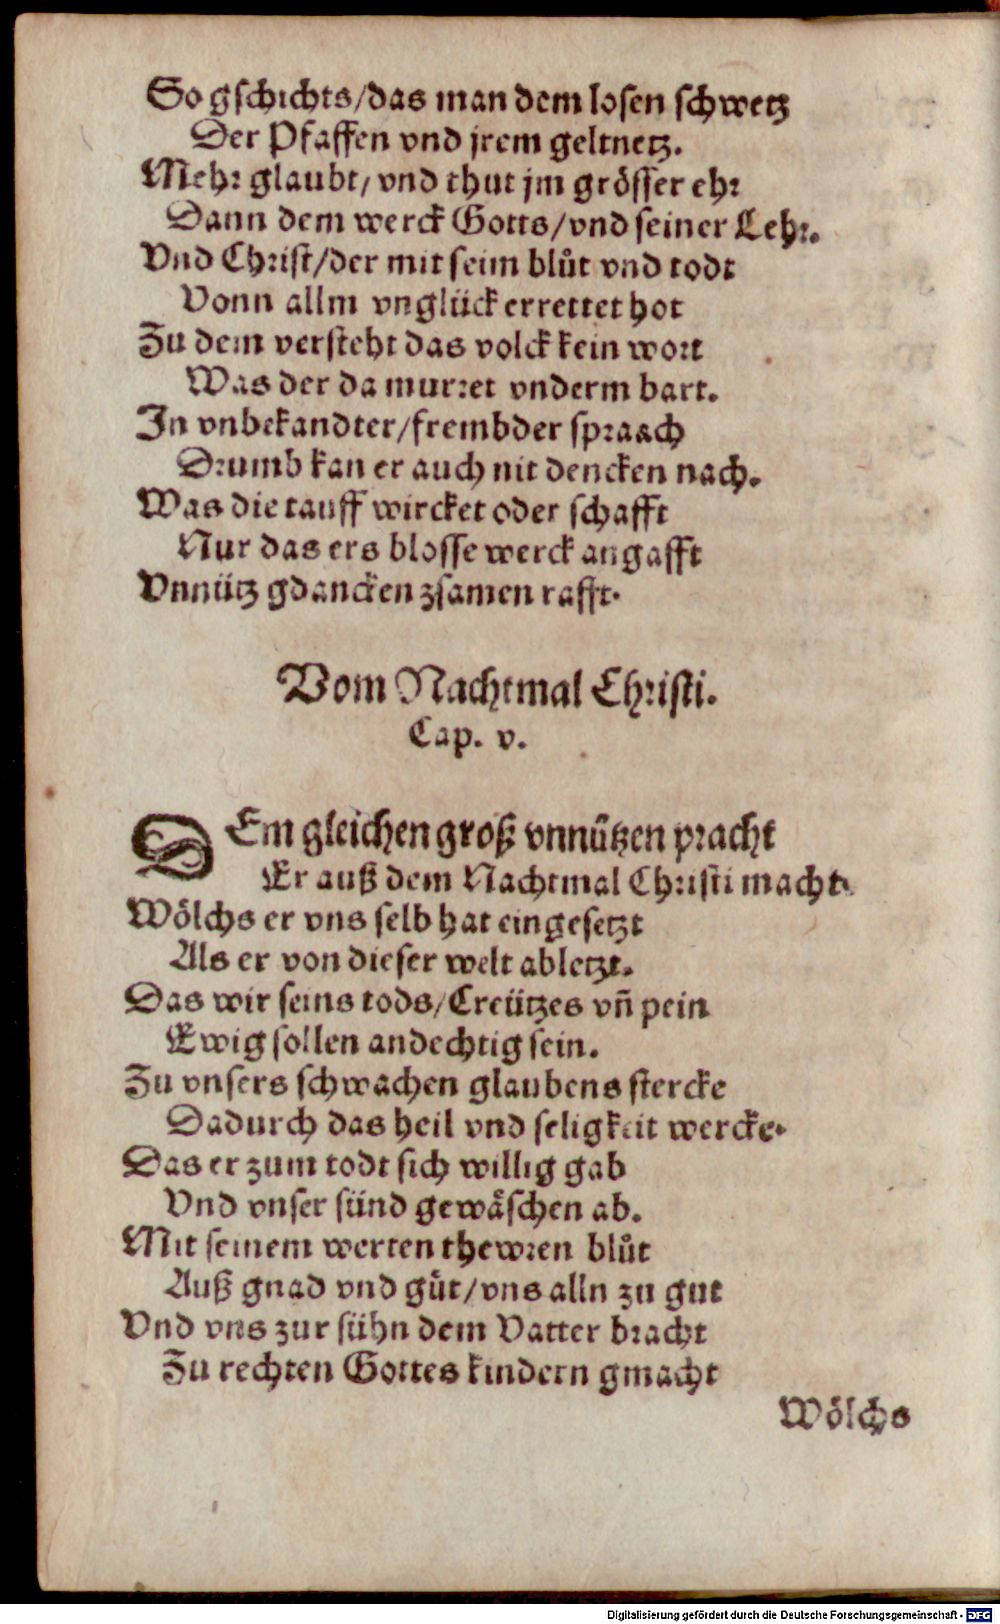 So gschichts/das man dem losen schwetz
Der Pfaffen vnd jrem geltnetz.
Mehr glaubt/vnd thut jm grösser ehr
Dann dem werck Gotts/vnd seiner Lehr.
Vnd Christ/der mit seim blůt vnd todt
Vonn allm vnglück errettet hot
Zu dem versteht das volck kein wort
Was der da murret vnderm bart.
In vnbekandter/frembder spraach
Drumb kan er auch nit dencken nach.
Was die tauff wircket oder schafft
Nur das ers blosse werck angafft
Vnnütz gdancken zsamen rafft.
Vom Nachtmal Christi.
Cap. v.
DEm gleichen groß vnnützen pracht
Er auß dem Nachtmal Christi macht.
Wölchs er vns selb hat eingesetzt
Als er von dieser welt abletzt.
Das wir seins tods/Creützes vñ pein
Ewig sollen andechtig sein.
Zu vnsers schwachen glaubens stercke
Dadurch das heil vnd seligkeit wercke.
Das er zum todt sich willig gab
Vnd vnser sünd gewäschen ab.
Mit seinem werten thewren blůt
Auß gnad vnd güt/vns alln zu gut
Vnd vns zur sühn dem Vatter bracht
Zu rechten Gottes kindern gmacht
Wölchs
Digitalisierung gefördert durch die Deutsche Forschungsgemeinschaft - DFG